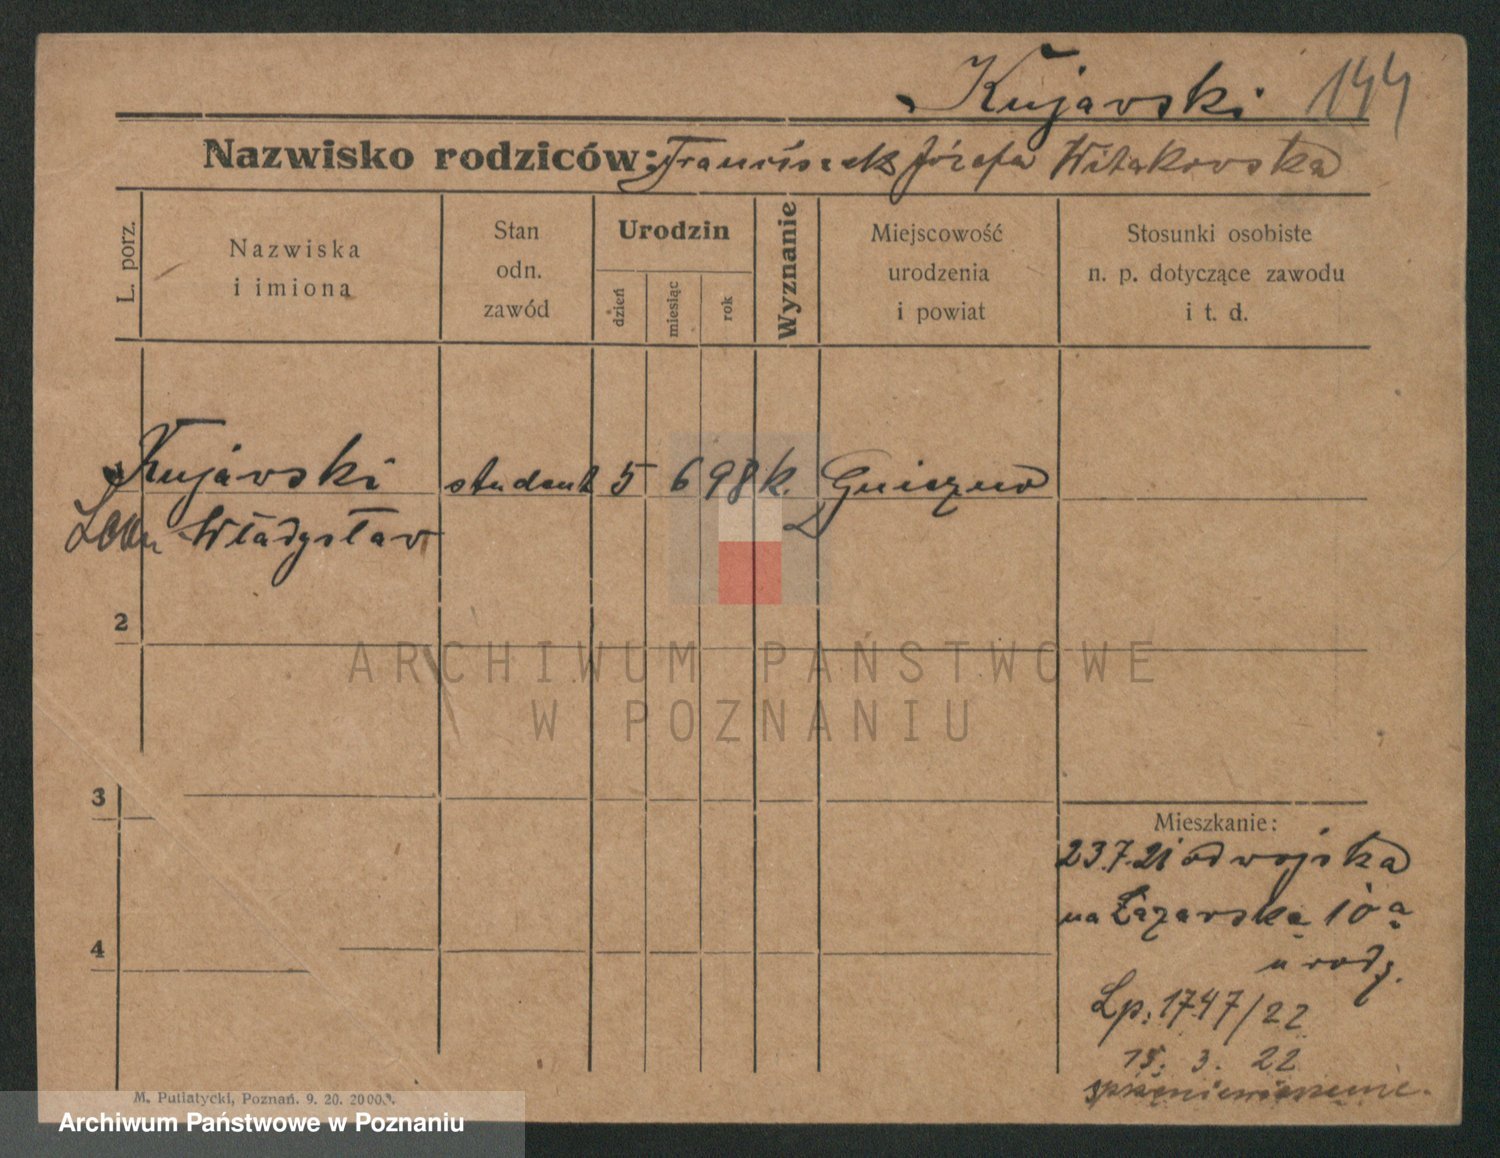 Kujavski 144
Nazwisko rodziców: Franciszek Józefa Witakovska
L. porz.
Nazwiska
i imiona
Stan
odn.
zawód
Urodzin
dzień
miesiąc
rok
Wyznanie
Miejscowość
urodzenia
i powiat
Stosunki osobiste
n. p. dotyczące zawodu
i t. d.
Kujavski student 5 6 98 k. Gniezno
Leon Władysłav
2
3
4
Mieszkanie:
23.7.21 od vojska
na Łazarską 10a
u rodz.
Lp: 1747/22
15. 3. 22
M. Putiatycki, Poznań. 9. 20. 20000.
ARCHIWUM PAŃSTWOWE
W POZNANIU
Archiwum Państwowe w Poznaniu